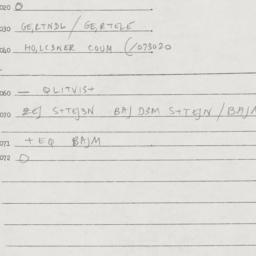 020 O
030 GE,RTNDL / GE,RTELE
040 HO,LCSNER COUM (/073020
060 — QLITVIS+
070 S+TEJSN BAJ DSM S+TEJN / BAJM
071 +EQ BAJM
072 O